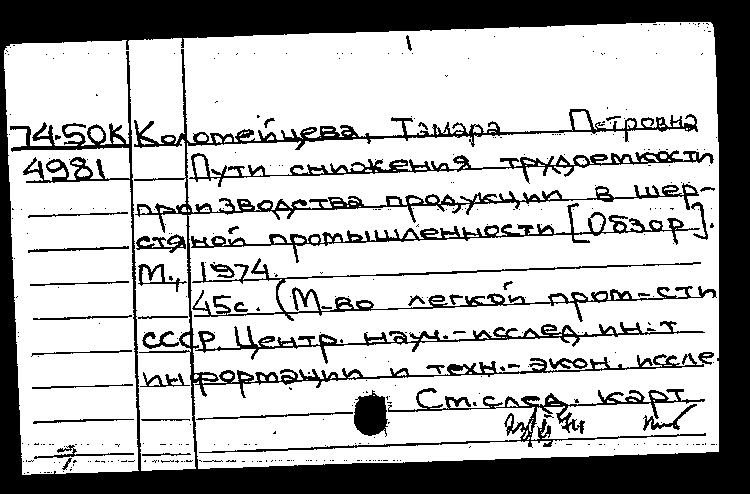 74-50К Коломейцева, Тамара Петровна
4981 Пути снижения трудоемкости
производства продукции в шер-
стяной промышленности [Обзор].
М., 1974.
45с. (М-во легкой пром-сти
СССР. Центр. науч.-исслед. ин-т
информации и техн.-экон. иссле
См. след. карт.